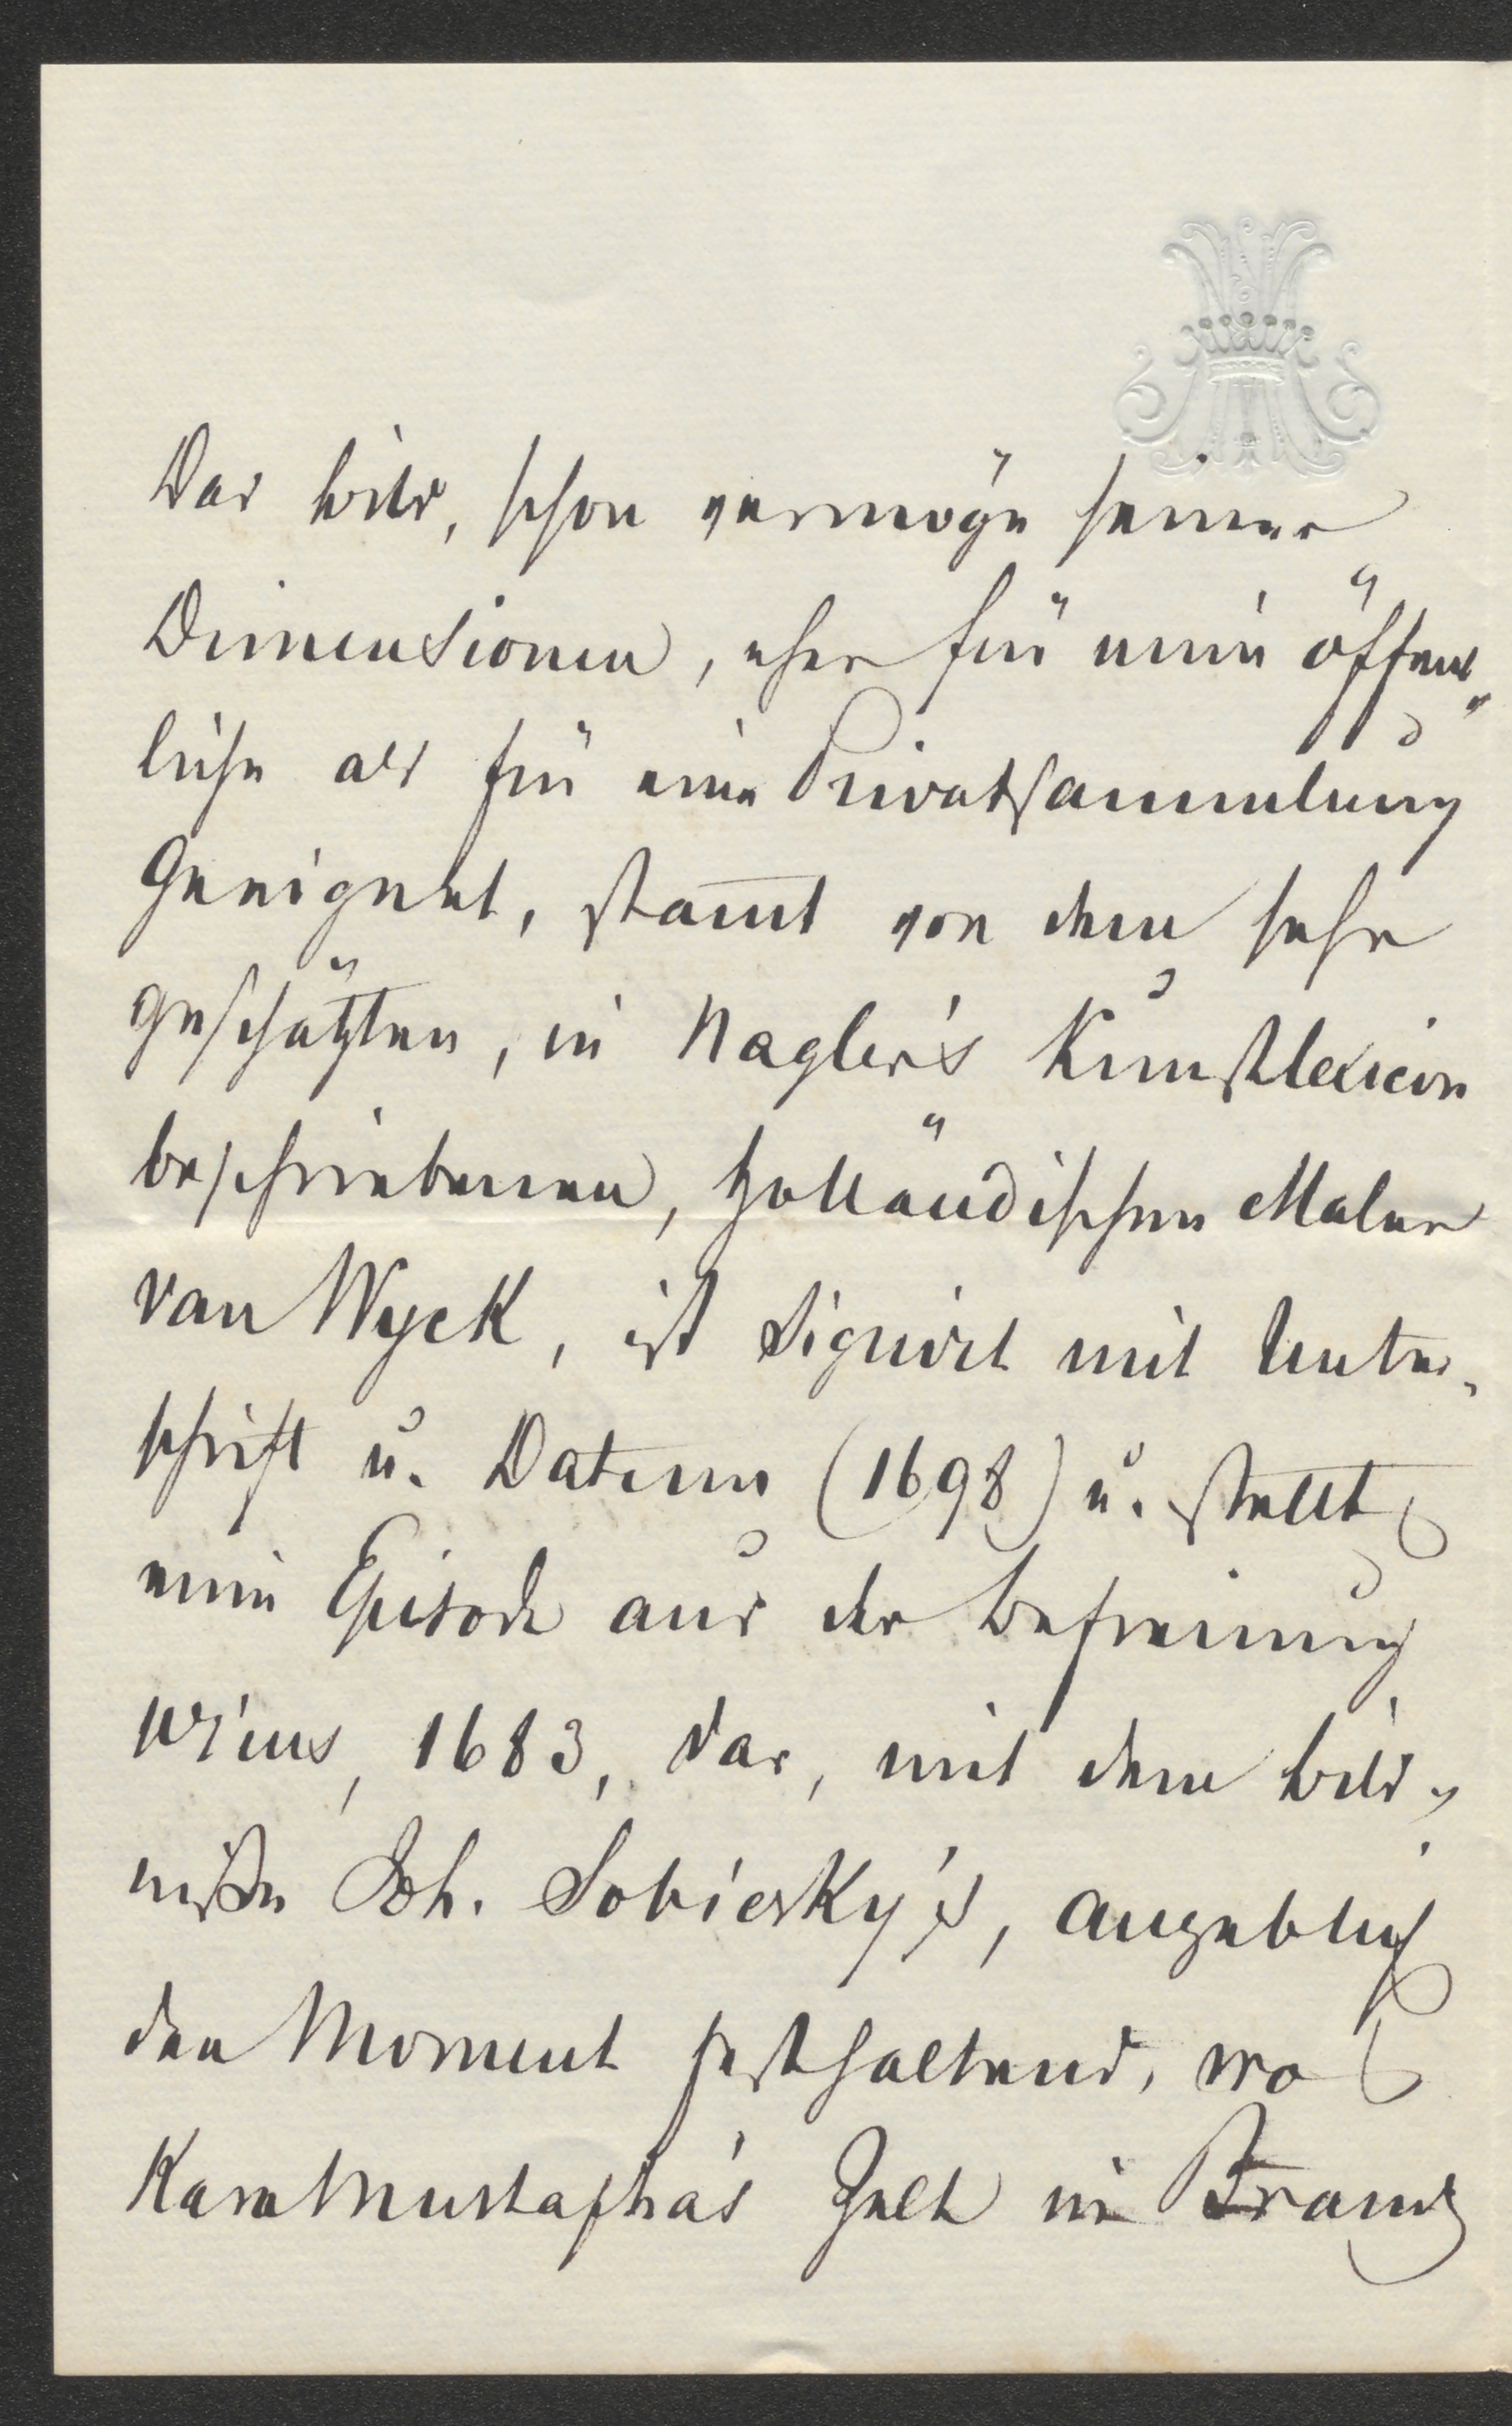 Das Bild, schon vermöge seiner
Dimensionen, eher für eine öffent„
liche als für eine Privatsammlung
geeignet, stam̅t von dem sehr
geschätzten, in Nagler's Kunstlexicon
beschriebenen, holländischen Maler
van Wyck, ist signirt mit Unter„
schrift u. Datum (1698) u. stellt
eine Episode aus der Befreiung
Wiens, 1683, dar, mit dem Bild„
niße Joh. Sobiesky's, angeblich
den Moment festhaltend, wo
Kara Mustapha's Zelt in Brand